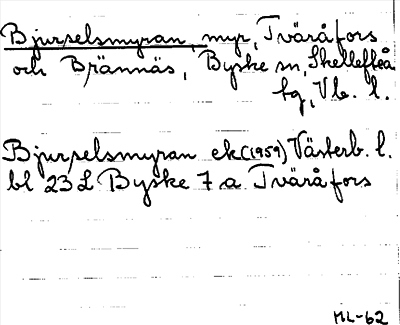 Bjurselsmyran, myr, Tväråfors
och Brännäs, Byske sn, Skellefteå
tg, Vb. l.
Bjurselsmyran ek(1959) Västerb. l.
bl 23 L Byske 7 a Tväråfors
ML-62